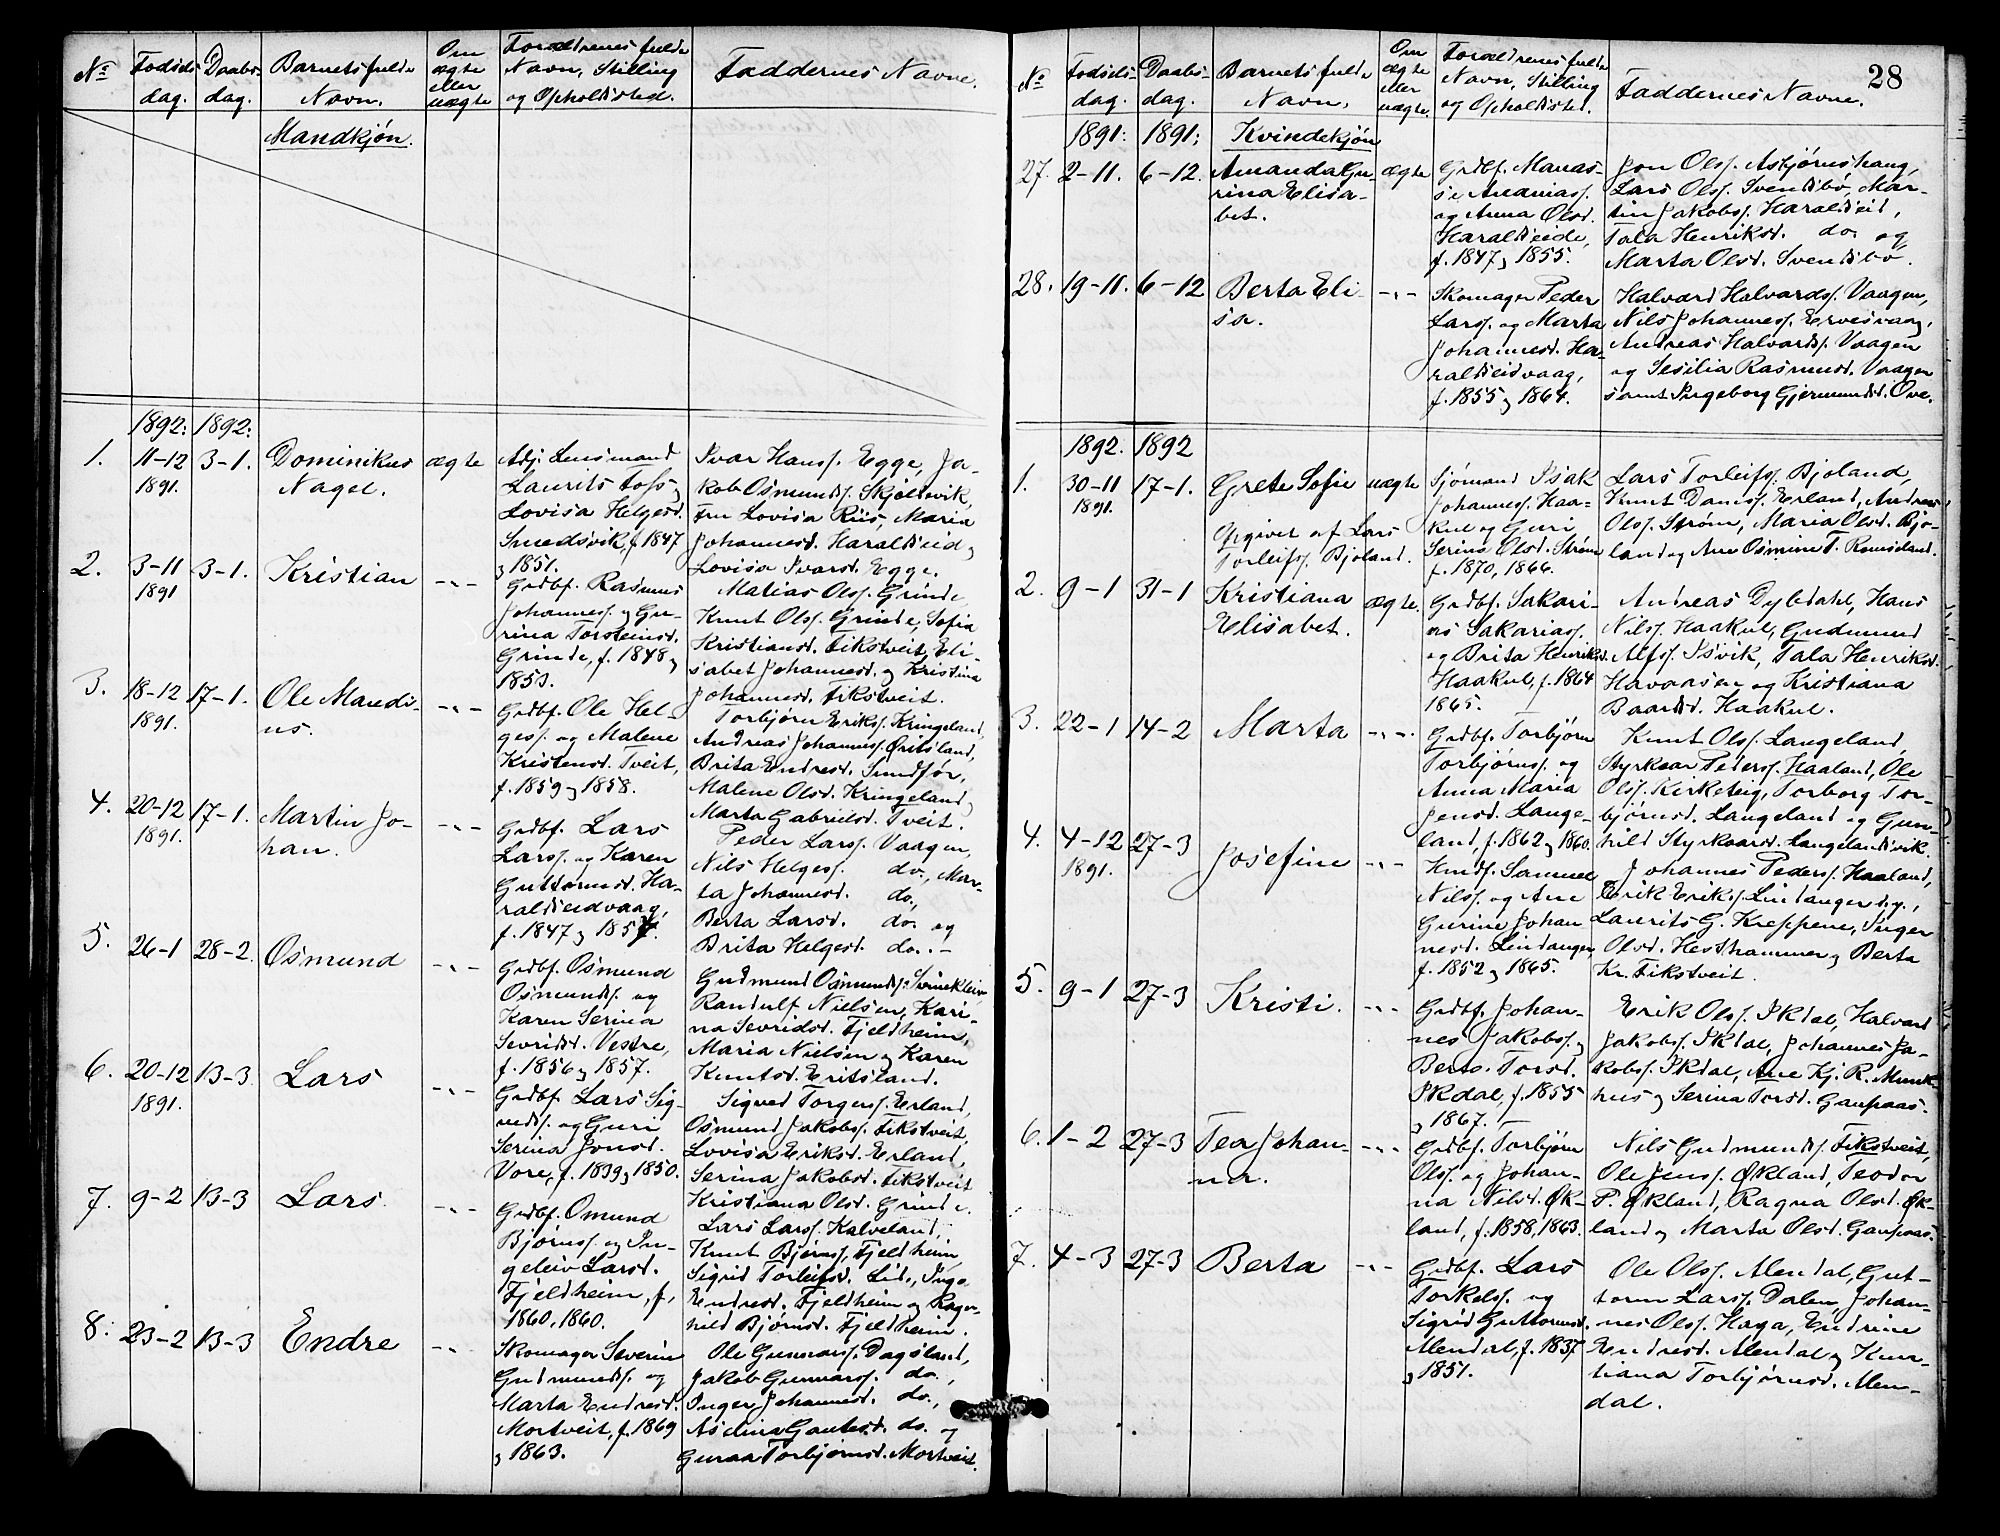 No
Fødsels-
dag.
Daabs-
dag.
Barnets fulde
Navn.
Om
ægte
eller
uægte
Forældrenes fulde
Navn, Stilling
og Opholdssted.
Faddernes Navne.
Mandkjøn.
1892: 1892:
1. 11-12 1891. 3-1. Dominikus Nagel. ægte
Adj. Lensmand
Laurits Foss
Lovisa Helgesd.
Smedsvik, f. 1847
og 1851.
Ivar Hansf. Egge, Ja-
kob Osmundsf. Skjoldevik,
Fru Lovisa Riis, Maria
Johannesd. Haraldseid og
Lovisa Ivarsd. Egge.
2. 3-11 1891 3-1. Kristian -"-
Grdbf. Rasmus
Johannesf. og Gu-
rina Torsteinsd.
Grinde, f. 1848 og
1853.
Matias Olsf. Grinde
Knut Olsf. Grinde, Sofia
Kristiansd. Fikstveit, Eli-
sabet Johannesd. og Kristina
Johannesd. Fikstveit.
3. 18-12 1891. 17-1. Ole Maredi-
us. -"-
Grdbf. Ole Hel-
gesf. og Malene
Kristensd. Tveit,
f. 1859 og 1858.
Torbjørn Eriksf. Kringeland,
Andreas Johannesf. Øritsland,
Brita Endresd. Sundfør,
Malene Olsd. Kringeland og
Marta Gabrielsd. Tveit.
4. 20-12 1891. 17-1. Martin Jo-
han. -"-
Grdbf. Lars
Larsf. og Karen
Guttormsd. Ha-
raldseidvaag,
f. 1847 og 1857.
Peder Larsf. Vaagen,
Nils Helgesf. do., Mar-
ta Johannesd. do.,
Berta Larsd. do. og
Brita Helgesd. do. -
5. 26-1 28-2. Osmund -"-
Grdbf. Osmund
Osmundsf. og
Karen Serina
Sevridsd. Vestre,
f. 1856 og 1857.
Gudmund Osmundsf.
Randulf Nielsen, Kari-
na Sevridsd. Fjeldheim,
Maria Nielsen og Karen
Knutsd. Eritsland.
6. 20-12 1891. 13-3. Lars -"-
Grdbf. Lars Sig-
vedsf. og Guri
Serina Jonsd.
Vore, f. 1839 og 1850.
Sigved Torgersf. Erland,
Osmund Jakobsf. Fikstveit,
Lovisa Eriksd. Erland,
Serina Jakobsd. Fikstveit
Kristiana Olsd. Grinde.
7. 9-2 13-3 Lars. -"-
Grdbf. Omund
Bjørnsf. og In-
geleiv Larsd.
Fjeldheim, f.
1860, 1860.
Lars Larsf. Kalveland,
Knut Bjørnsf. Fjeldheim,
Sigrid Torleifsd. Lid, Inga
Endresd. Fjeldheim og Ragn-
hild Bjørnsd. Fjeldheim.
8. 23-2 13-3 Endre -"-
Skomager Severin
Gudmundsf. og
Marta Endresd.
Mortveit, f. 1869
og 1863.
Ole Gunnarsf. Dagsland,
Jakob Gunnarsf. do.,
Inger Johannesd. do.,
Aselina Gautesd. do. og
Guraa Torbjørnsd. Mortveit.
28
No
Fødsels-
dag.
Daabs-
dag.
Barnets fulde
Navn.
Om
ægte
eller
uægte.
Forældrenes fulde
Navn, Stilling
og Opholdssted.
Faddernes Navne.
1891: 1891: Kvindekjøn
27. 2-11. 6-12. Amanda Gu-
rina Elisa-
bet. ægte
Grdbf. Manas-
se Ananiasf.
og Anna Olsd.
Haraldseide,
f. 1847 og 1855.
Jon Olsf. Asbjørnshaug,
Lars Olsf. Svendsbø, Mar-
tin Jakobsf. Haraldseid,
Tala Henriksd. do. og
Marta Olsd. Svendsbø.
28. 19-11. 6-12 Berta Eli-
sa. -"-
Skomager Peder
Larsf. og Marta
Johannesd. Ha-
raldseidvaag,
f. 1855 og 1864.
Halvard Halvardsf. Vaagen,
Nils Johannesf. Ervesvaag,
Andreas Halvardsf. Vaagen
og Sesilia Rasmusd. Vaagen
samt Ingeborg Gjermundsd. Ove.
1892. 1892
1. 30-11 1891. 17-1. Grete Sofie uægte
Opgivet af Lars
Torleifsf. Bjoland.
Sjømand Isak
Johannesf. Haa-
kul og Guri
Serina Olsd. Strøm
f. 1870, 1866.
Lars Torleifsf. Bjoland,
Knut Danesf. Erland, Andreas
Olsf. Strøm, Maria Olsd. Bjo-
land og Ane Osmine T. Romseland.
2. 9-1 31-1 Kristiana
Elisabet. ægte.
Grdbf. Sakari-
as Sakariasf.
og Brita Henriksd.
Haakul, f. 1864
1865.
Andreas Dybdahl, Hans
Nilsf. Haakul, Gudmund
Alfsf. Isvik, Tala Henriksd.
Havaasen og Kristiana
Baardsd. Haakul.
3. 22-1 14-2 Marta -"-
Grdbf. Torbjørn
Torbjørnsf. og
Anna Maria
Jensd. Lange-
land, f. 1862 og 1860.
Knut Olsf. Langeland,
Styrkaar Pedersf. Haaland, Ole
Olsf. Kirketeig, Torborg Tor-
bjørnsd. Langeland og Gun-
hild Styrkaarsd. Langelandsvik.
4. 4-12 1891. 27-3 Josefine -"-
Husf. Samuel
Nilsf. og Ane
Gurine Johan
nesd. Lindanger
f. 1852 og 1865.
Johannes Pedersf. Haaland,
Erik Eriksf. Lindanger d.y.,
Laurits G. Kreppene, Inger
Olsd. Hesthammer og Berta
Kr. Fikstveit.
5. 9-1 27-3 Kristi. -"-
Grdbf. Johan-
nes Jakobsf. og
Berta Torsd.
Ikdal, f. 1855
og 1867.
Erik Olsf. Ikdal, Halvard
Jakobsf. Ikdal, Johannes Ja-
kobsf. Ikdal, Ane Kj. R. Munk-
hus og Serina Torsd. Gaupaas.
6. 1-2 27-3 Tea Johan-
na. -"-
Grdbf. Torbjørn
Olsf. og Johan-
na Nilsd. Øk-
land, f. 1858, 1863.
Nils Gudmundsf. Fikstveit,
Ole Jensf. Økland, Teodor
P. Økland, Ragna Olsd. Øk-
land og Marta Olsd. Gaupaas.
7. 4-3 27-3 Berta -"-
Grdbf. Lars
Torkelsf. og
Sigrid Guttormsd.
Alendal, f. 1837
og 1851.
Ole Olsf. Alendal, Gut-
torm Larsf. Dalen, Johan-
nes Olsf. Haga, Endrine
Endresd. Alendal og Knu-
tiana Torbjørnsd. Alen-
dal.